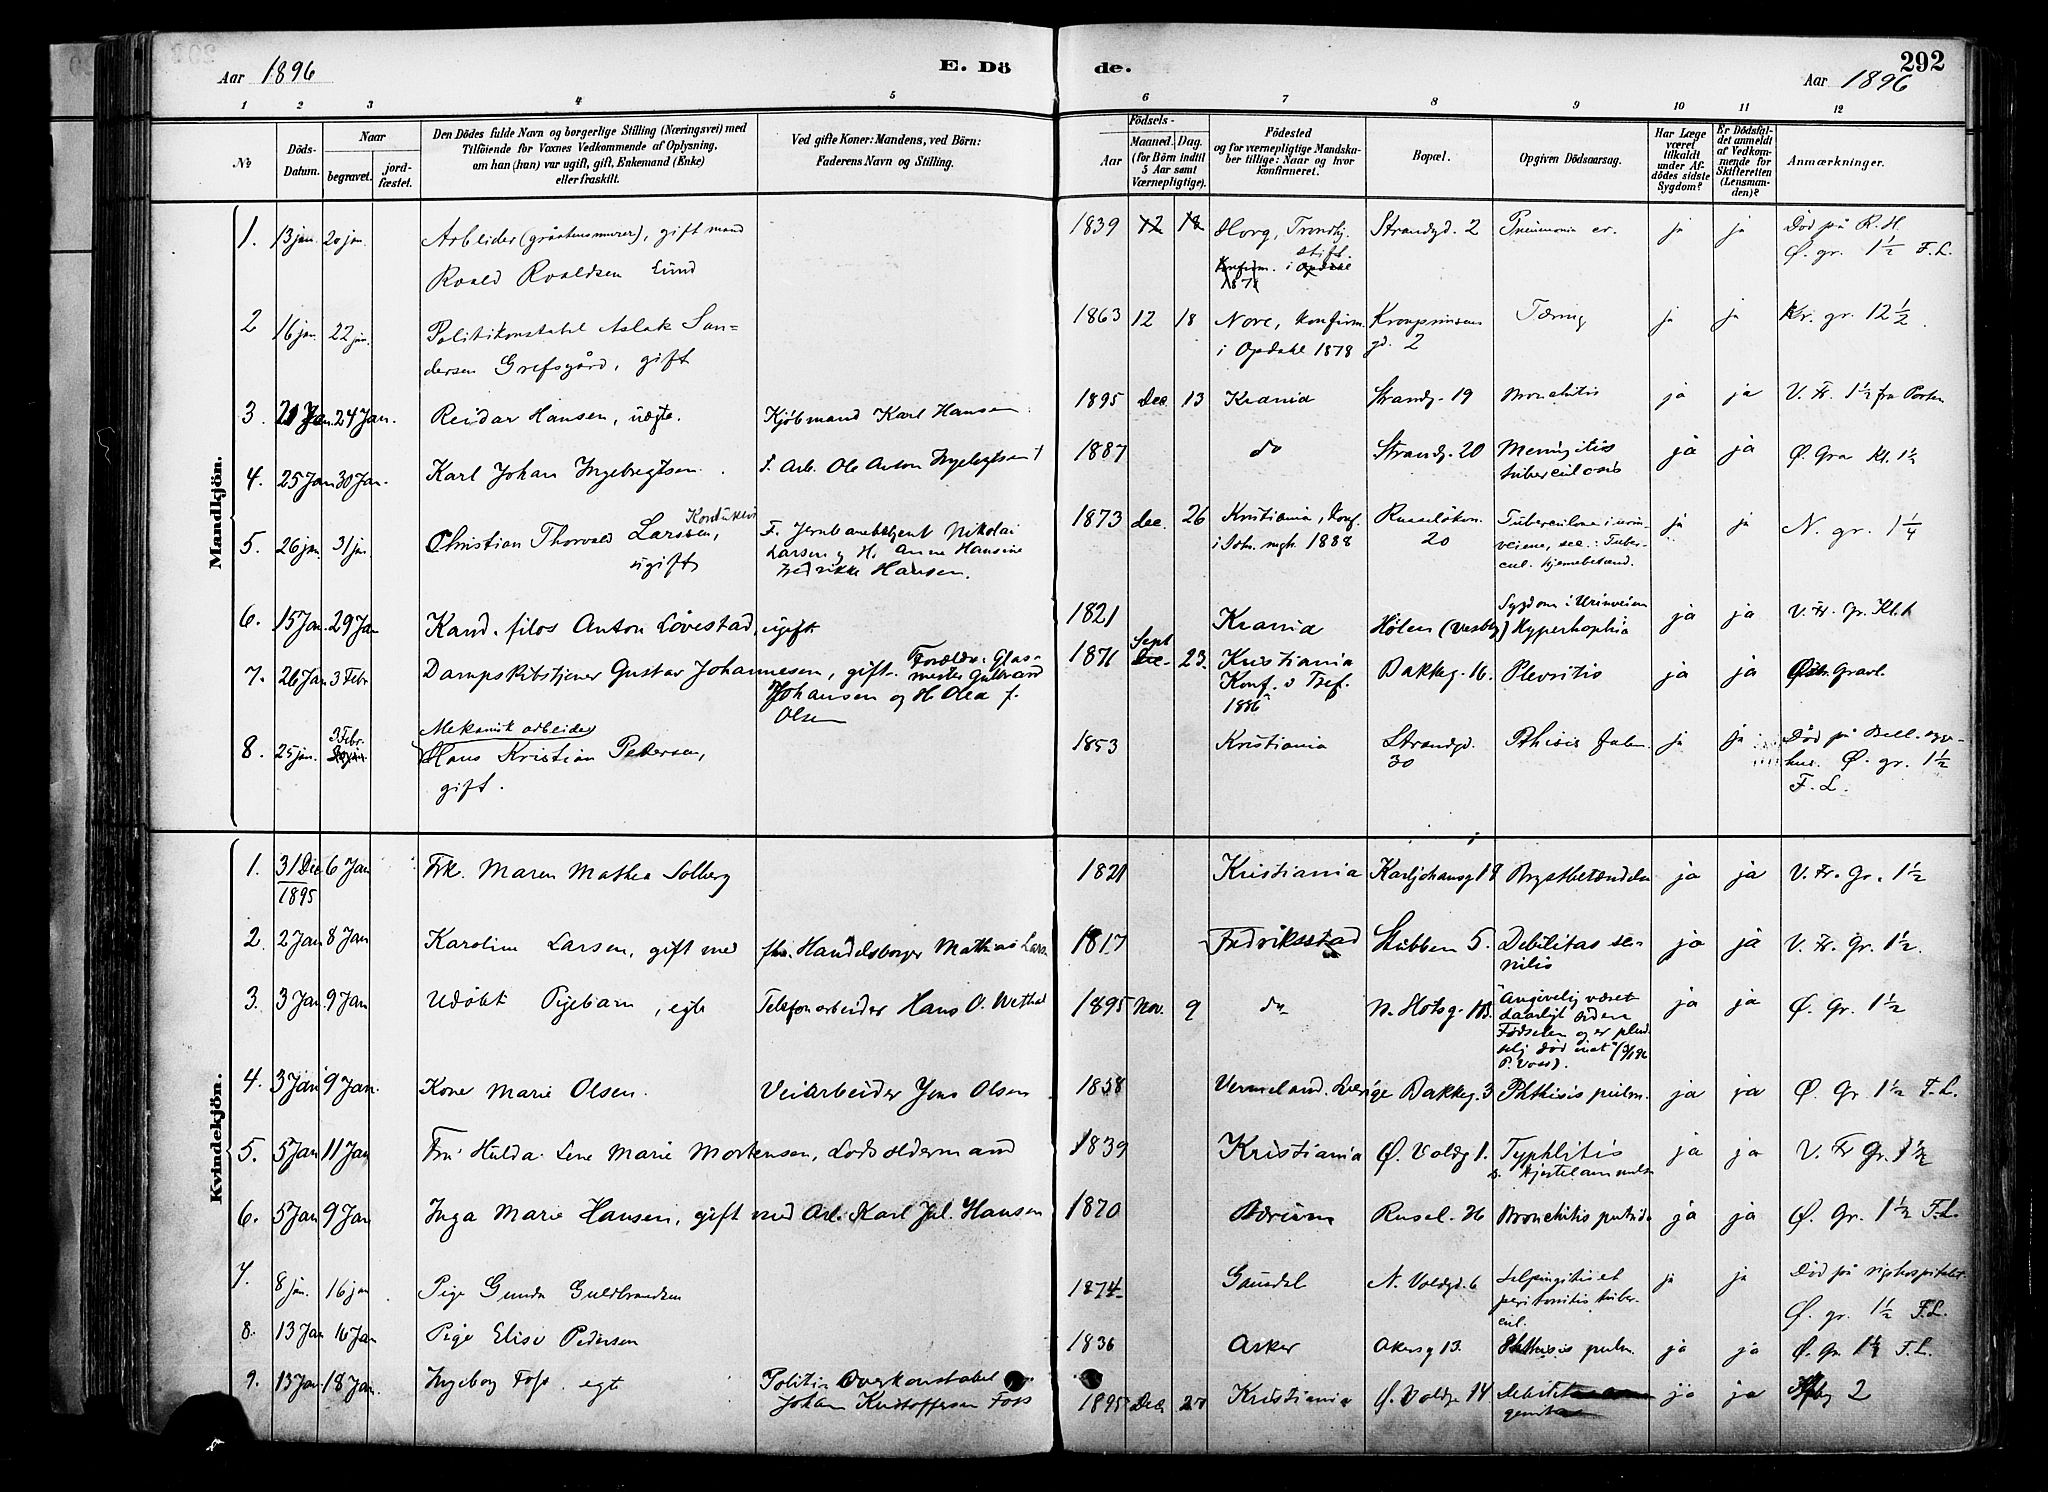 292
Aar 1896
E. Dö de.
Aar 1896
1 2 3 4 5 6 7 8 9 10 11 12
No
Döds-Datum.
Naar
begravet.
jord-fæstet.
Den Dödes fulde Navn og borgerlige Stilling (Næringsvei) med
Tilföiende for Voxnes Vedkommende af Oplysning,
om han (hun) var ugift, gift, Enkemand (Enke)
eller fraskilt.
Ved gifte Koner: Mandens, ved Börn:
Faderens Navn og Stilling.
Födsels-
Aar
Maaned. Dag.
(for Börn indtil
5 Aar samt
Værnepligtige).
Födested
og for værnepligtige Mandska-
ber tillige: Naar og hvor
konfirmeret.
Bopæl.
Opgiven Dödsaarsag.
Har Læge
været
tilkaldt
under Af-
dödes sidste
Sygdom?
Er Dödsfal-
det anmeldt
af Vedkom-
mende for
Skifteretten
(Lensman-
den)?
Anmærkninger.
Mandkjön.
1. 13 jan. 20 jan. Arbeider (gråstensmurer), gift mand 1839 12 18 Horg, Trondhj. Strandgd. 2 Pneumonia cr. ja ja Död på R. H.
Roald Roaldsen Lund stift. Ø. gr. 1½ F.L.
Konfirm. i Opdahl
1878
2 16 jan. 22 jan. Politikonstabel Aslak San- 1863 12 18 Nore, konfirm. Kronprinsens Tæring ja ja Kr. gr. 12½
dersen Grefsgård, gift i Opdahl 1878 gd. 2
3. 21 Jan. 24 Jan. Reidar Hansen, uægte. Kjøbmand Karl Hansen 1895 Dec. 13 Krania Strandg. 19 Bronchitis ja ja V. Fr. 1½ fra Porten
4. 25 Jan 30 Jan. Karl Johan Ingebregtsen. F. Arb. Ole Anton Ingebregtsen † 1887 do Strandg. 20 Meningitis ja ja Ø. Gra Kl. 1½
tuberculosis
5. 26 jan. 31 jan Christian Thorvald Larssen, Konduktør F. Jernbanebetjent Nikolai 1873 dec. 26 Kristiania, Konf. Russeløkv. Tuberculose i urin- ja ja N. gr. 1¼
ugift Larsen og H. Anne Hansine 1888 20 veiene, sec.: Tuber-
Fredrikke Hansen. cul. hjernebetænd.
6. 15 Jan. 29 Jan Kand. filos Anton Løvestad, ugift 1821 Krania Hølen (Vestby) Sygdom i Urinveien ja ja V. Fr. Gr. Kl. 1
Hyperthophia
7. 26 Jan 3 Febr Dampskibstjener Gustav Johannesen, gift. Forældre: Glas- 1871 Sept Dec 23. Kristiania Bakkeg. 16. Plevritis ja ja Østr. Gravl.
mester Gulbrand Konf. v Tref.
Johansen og H. Olea f. 1886
Olsen
8. 25 jan. 3 Febr. Mekanisk arbeider 1853 Kristiania Strandgd. Pthisis pulm. ja ja Död på
Hans Kristian Petersen, 30 hus. Ø. gr. 1½
gift. F. L.
Kvindekjön.
1. 31 Dec 1895 6 Jan Frk. Maren Mathea Solberg 1821 Kristiania Karljohansg 18 Brystbetændelse ja ja V. Fr. Gr. 1½
2. 2 Jan 8 Jan Karoline Larsen, gift med fhv. Handelsborger Mathias Lars. 1817 Fredriksstad Stubben 5. Debilitas se- ja ja V. Fr. Gr. 1½.
nilis
3. 3 Jan. 9 Jan Udøbt Pigebarn, egte Telefonarbeider Hans O. Wethal 1895 Nov. 9 do N. Slotsg. 10B. "Angivelig været ja ja Ø. Gr. 1½
daarligt siden
Fødselen og er plud-
selig død inat"
P. Voss).
4. 3 Jan 9 Jan. Kone Marie Olsen. Veiarbeider Jens Olsen 1858 Vermeland. Sverige Bakkeg. 3 Phthisis pulm. ja ja Ø. Gr. 1½ F.L.
5. 5 Jan 11 Jan Fru Hulda Lene Marie Mortensen, Lodsoldermand 1839 Kristiania Ø. Voldg 1. Typhlitis ja ja V. Fr Gr. 1½
s. Hjertelammelse
6. 5 Jan 9 Jan Inga Marie Hansen, gift med Arb. Karl Jul. Hansen 1870 Bærum Rusel. 26 Bronchitis putrida ja ja Ø. Gr. 1½ F.L.
7. 8 jan. 16 jan Pige Gunda Guldbrandsen 1874 Gausdal N. Voldgd. 6 Salpingitis et ja ja Död på rigshospitalet
peritonitis tuber- Ø. gr. 1½ F.L.
cul.
8. 13 Jan 16 Jan Pige Elise Pedersen 1836 Asker Akersg 13. Phthisis pulm. ja ja Ø. Gr. F.L.
9. 13 Jan 18 Jan. Ingeborg Foss. egt Politi Overkonstabel 1895 Dec 27 Kristiania Ø. Voldg 14. ja ja 2
Johan Kristoffersen Foss